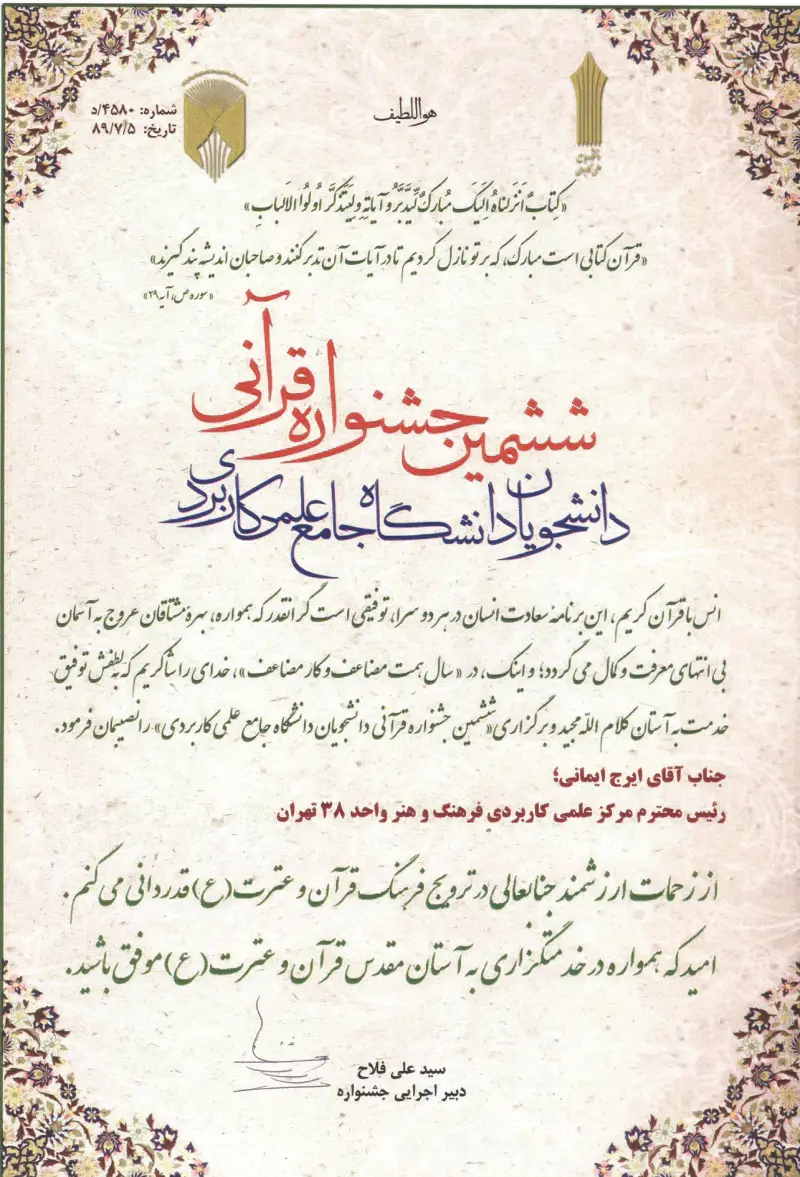 هواللطیف
شماره: ۴۵۸۰/د
تاریخ: ۸۹/۷/۵
«کِتابٌ اَنزَلناهُ اِلَیکَ مُبارَکٌ لِّیَدَّبَّرُو آیاتِهِ وَلِیَتَذَکَّرَ اُولُوا الاَلبابِ»
«قرآن کتابی است مبارک، که بر تو نازل کردیم تا در آیات آن تدبر کنند و صاحبان اندیشه پند گیرند»
«سوره ص، آیه ۲۹»
ششمین جشنواره قرآنی
دانشجویان دانشگاه جامع علمی کاربردی
انس با قرآن کریم، این برنامهٔ سعادت انسان در هر دو سرا، توفیقی است گرانقدر که همواره، بهرهٔ مشتاقان عروج به آسمان
بی انتهای معرفت و کمال می گردد؛ و اینک، در «سال همت مضاعف و کار مضاعف»، خدای را شاکریم که به لطفش توفیق
خدمت به آستان کلام اللّه مجید و برگزاری «ششمین جشنواره قرآنی دانشجویان دانشگاه جامع علمی کاربردی» را نصیبمان فرمود.
جناب آقای ایرج ایمانی؛
رئیس محترم مرکز علمی کاربردی فرهنگ و هنر واحد ۳۸ تهران
از زحمات ارزشمند جنابعالی در ترویج فرهنگ قرآن و عترت (ع) قدردانی می کنم.
امید که همواره در خدمتگزاری به آستان مقدس قرآن و عترت (ع) موفق باشید.
سید علی فلاح
دبیر اجرایی جشنواره